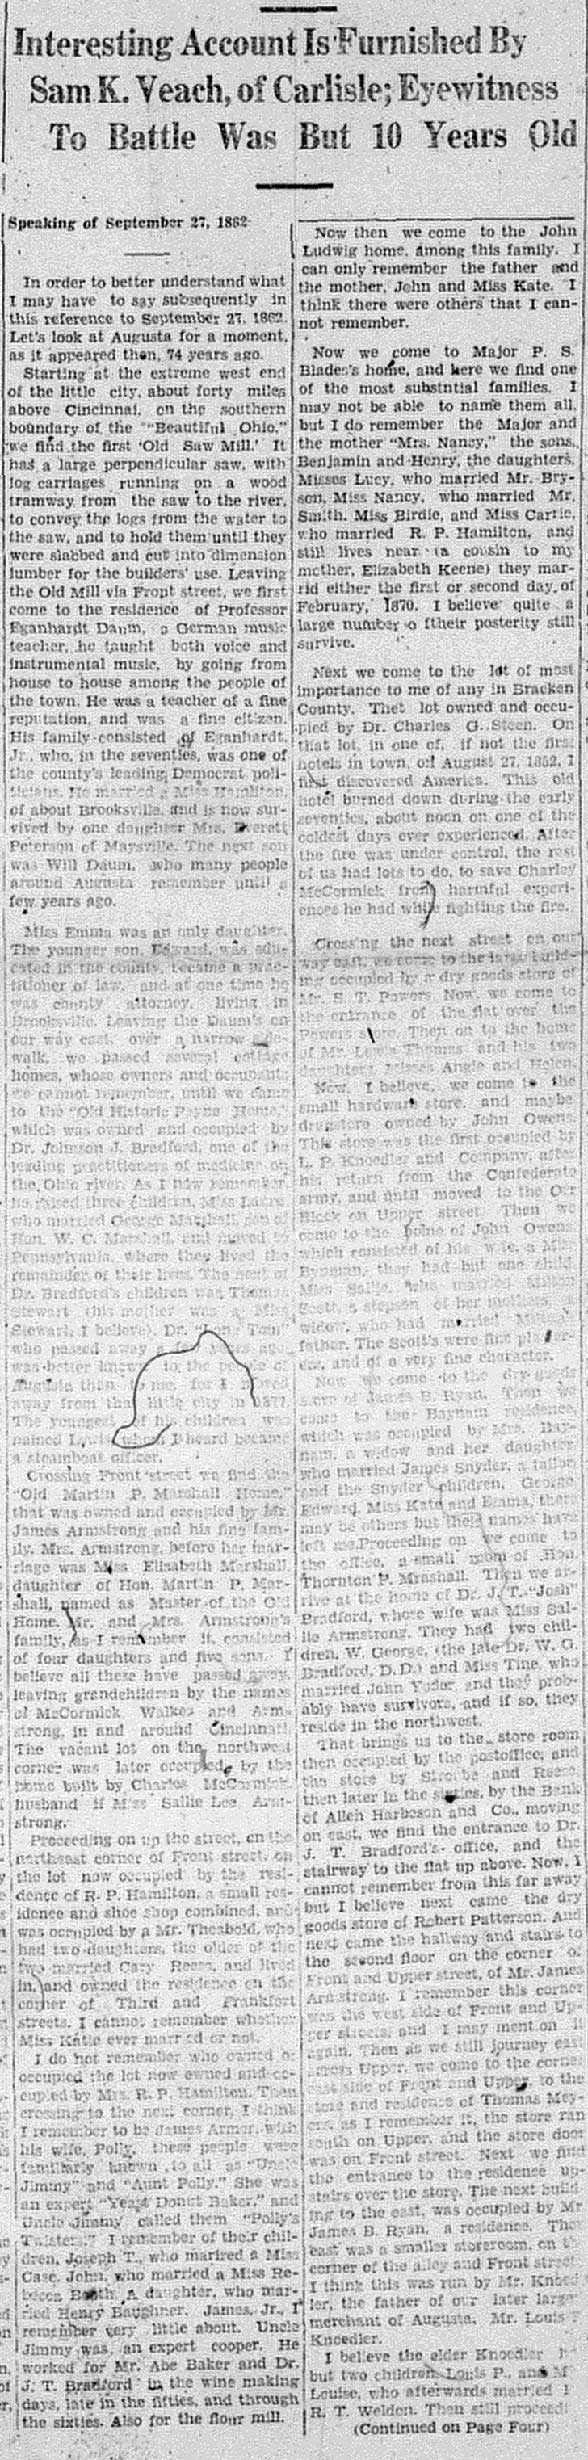 Interesting Account Is Furnished By
Sam K. Veach, of Carlisle; Eyewitness
To Battle Was But 10 Years Old
Speaking of September 27, 1862
In order to better understand what
I may have to say subsequently in
this reference to September 27, 1862.
Let's look at Augusta for a moment,
as it appeared then, 74 years ago.
Starting at the extreme west end
of the little city, about forty miles
above Cincinnai, on the southern
boundary of the "Beautiful Ohio,"
we find the first 'Old Saw Mill.' It
had a large perpendicular saw, with
log carriages running on a wood
tramway from the saw to the river,
to convey the logs from the water to
the saw, and to hold them until they
were slabbed and cut into dimension
lumber for the builders' use. Leaving
the Old Mill via Front street, we first
come to the residence of Professor
Eganhardt Daum, a German music
teacher, he taught both voice and
instrumental music, by going from
house to house among the people of
the town. He was a teacher of a fine
reputation, and was a fine citizen.
His family consisted of Eganhardt,
Jr., who, in the seventies, was one of
the county's leading Democrat poli-
ticians. He married a Miss Hamilton,
of about Brooksville, and is now sur-
vived by one daughter Mrs. Everett
Peterson of Maysville. The next son
was Will Daum, who many people
around Augusta remember until a
few years ago.
Miss Emma was an only daughter.
The younger son, Edward, was edu-
cated in the county, became a prac-
titioner of law, and at one time he
was county attorney, living in
Brooksville. Leaving the Daum's on
our way east, over a narrow
walk, we passed several cottage
homes, whose owners and occupants
we cannot remember, until we came
to the "Old Historic Payne Home,"
which was owned and occupied by
Dr. Johnson J. Bradford, one of the
leading practitioners of medicine on
the Ohio river. As I now remember,
he raised three children, Miss
who married George Marshall, son of
Hon. W. C. Marshall, and moved to
Pennsylvania, where they lived the
remainder of their lives. The next of
Dr. Bradford's children was Thomas
Stewart (his mother was a Miss
Stewart, I believe). Dr. Tom"
who passed away years ago
was better known to the people of
Augusta than to me, for I moved
away from that little city in 1877.
The youngest of his children was
named Louis, whom I heard became
a steamboat officer.
Crossing Front street we find the
"Old Martin P. Marshall Home,"
that was owned and occupied by Mr.
James Armstrong and his fine fam-
ily. Mrs. Armstrong, before her mar-
riage was Miss Elisabeth Marshall,
daughter of Hon. Martin P. Mar-
shall, named as Master of the Old
Home. Mr. and Mrs. Armstrong's
family, as I remember it, consisted
of four daughters and five sons. I
believe all these have passed away,
leaving grandchildren by the names
of McCormick Walkes and Arm-
strong, in and around Cincinnati.
The vacant lot on the northwest
corner was later occupied by the
home built by Charles McCormick
husband if Miss Sallie Lee Arm-
strong.
Proceeding on up the street, on the
northeast corner of Front street, on
the lot now occupied by the resi-
dence of R. P. Hamilton, a small res-
idence and shoe shop combined, and
was occupied by a Mr. Theabold, who
had two daughters, the older of the
two married Cary Reese, and lived
in, and owned the residence on the
corner of Third and Frankfort
streets. I cannot remember whether
Miss Katie ever married or not.
I do not remember who owned or
occupied the lot now owned and oc-
cupied by Mrs. R. P. Hamilton. Then
crossing to the next corner, I think
I remember to be James Armor, with
his wife, Polly, these people were
familiarly known to all as "Uncle
Jimmy" and "Aunt Polly." She was
an expert "Yeast Donut Baker," and
Uncle Jimmy called them "Polly's
Twisters." I remember of their chil-
dren, Joseph T., who marired a Miss
Case, John, who married a Miss Re-
becca Booth, A daughter, who mar-
ried Henry Baughner. James, Jr., I
remember very little about. Uncle
Jimmy was an expert cooper. He
worked for Mr. Abe Baker and Dr.
J. T. Bradford in the wine making
days, late in the fifties, and through
the sixties. Also for the flour mill.
Now then we come to the John
Ludwig home, among this family. I
can only remember the father and
the mother, John and Miss Kate. I
think there were others that I can-
not remember.
Now we come to Major P. S.
Blades's home, and here we find one
of the most substntial families. I
may not be able to name them all,
but I do remember the Major and
the mother "Mrs. Nancy," the sons,
Benjamin and Henry, the daughters,
Misses Lucy, who married Mr. Bry-
son, Miss Nancy, who married Mr.
Smith, Miss Birdie, and Miss Carrie,
who married R. P. Hamilton, and
still lives near (a cousin to my
mother, Elizabeth Keene) they mar-
rid either the first or second day of
February, 1870. I believe quite a
large number o ftheir posterity still
survive.
Next we come to the lot of most
importance to me of any in Bracken
County. Thet lot owned and occu-
pied by Dr. Charles G. Steen. On
that lot, in one of, if not the first
hotels in town, on August 27, 1852, I
first discovered America. This old
hotel burned down during the early
seventies, about noon on one of the
coldest days ever experienced. After
the fire was under control, the rest
of us had lots to do, to save Charley
McCormick from harmful experi-
ences he had while fighting the fire.
Crossing the next street on our
way east, we come to the large build-
ing occupied by a dry goods store of
Mr. S. T. Powers. Now, we come to
the entrance of the flat over the
Powers store. Then on to the home
of Mr. Lewis Thomas and his two
daughters, Misses Angie and Helen.
Now, I believe, we come to the
small hardware store, and maybe
drugstore owned by John Owens.
This store was the first occupied by
L. P. Knoedler and Company, after
his return from the Confederate
army, and until moved to the Orr
Block on Upper street. Then we
come to the home of John Owens,
which consisted of his wife, a Miss
they had but one child
Miss Sallie, who married Milton
Scott, a stepson of her mother's, a
widow, who had married
father. The Scott's were fine
and of a very fine character.
Now we come to the dry goods
store of James B. Ryan. Then we
come to the Baynam residence,
which was occupied by Mrs. Bay-
nam, a widow and her daughter
who married James Snyder, a tailor,
and the Snyder children, George
Edward, Miss Kate and Emma, there
may be others but their names have
left me. Proceeding on we come to
the office, a small room of Hon.
Thornton P. Mrashall. Then we ar-
rive at the home of Dr. J. T. "Josh"
Bradford, whose wife was Miss Sal-
lie Armstrong. They had two chil-
dren, W. George, (the late Dr. W. G.
Bradford, D.D.) and Miss Tine, who
married John Yoder and they prob-
ably have survivors, and if so, they
reside in the northwest.
That brings us to the store room
then occupied by the postoffice, and
the store by Stroube and Reese,
then later in the sixties, by the Bank
of Allen Harbeson and Co., moving
on east, we find the entrance to Dr.
J. T. Bradford's office, and the
stairway to the flat up above. Now, I
cannot remember from this far away
but I believe next came the dry
goods store of Robert Patterson. And
next came the hallway and stairs to
the second floor on the corner of
Front and Upper street, of Mr. James
Armstrong. I remember this corner
was the west side of Front and Up-
per streets, and I may mention it
again. Then as we still journey east
across Upper, we come to the corner
east side of Front and Upper, to the
store and residence of Thomas Mey-
ers, as I remember it, the store ran
south on Upper, and the store door
was on Front street. Next we find
the entrance to the residence up-
stairs over the store. The next build-
ing to the east, was occupied by Mr.
James B. Ryan, a residence. Then
east was a smaller storeroom, on th
corner of the alley and Front street
I think this was run by Mr. Knoed-
ler, the father of our later large
merchant of Augusta, Mr. Louis P
Knoedler.
I believe the elder Knoedler h
but two children, Louis P., and M
Louise, who afterwards married
R. T. Weldon. Then still proceedi
(Continued on Page Four)